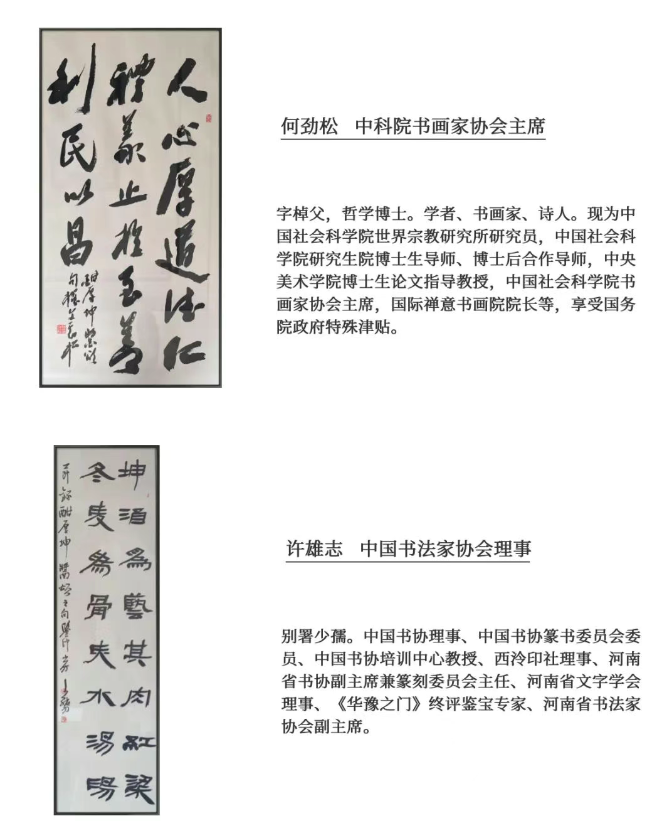 人心厚道德仁
礼義止於至善
利民以昌
何劲松 中科院书画家协会主席
字棹父，哲学博士。学者、书画家、诗人。现为中
国社会科学院世界宗教研究所研究员，中国社会科
学院研究生院博士生导师、博士后合作导师，中央
美术学院博士生论文指导教授，中国社会科学院书
画家协会主席，国际禅意书画院院长等，享受国务
院政府特殊津贴。
坤酒為藝其肉紅粱
冬麦為骨夫水湯暘
许雄志 中国书法家协会理事
别署少孺。中国书协理事、中国书协篆书委员会委
员、中国书协培训中心教授、西泠印社理事、河南
省书协副主席兼篆刻委员会主任、河南省文字学会
理事、《华豫之门》终评鉴宝专家、河南省书法家
协会副主席。